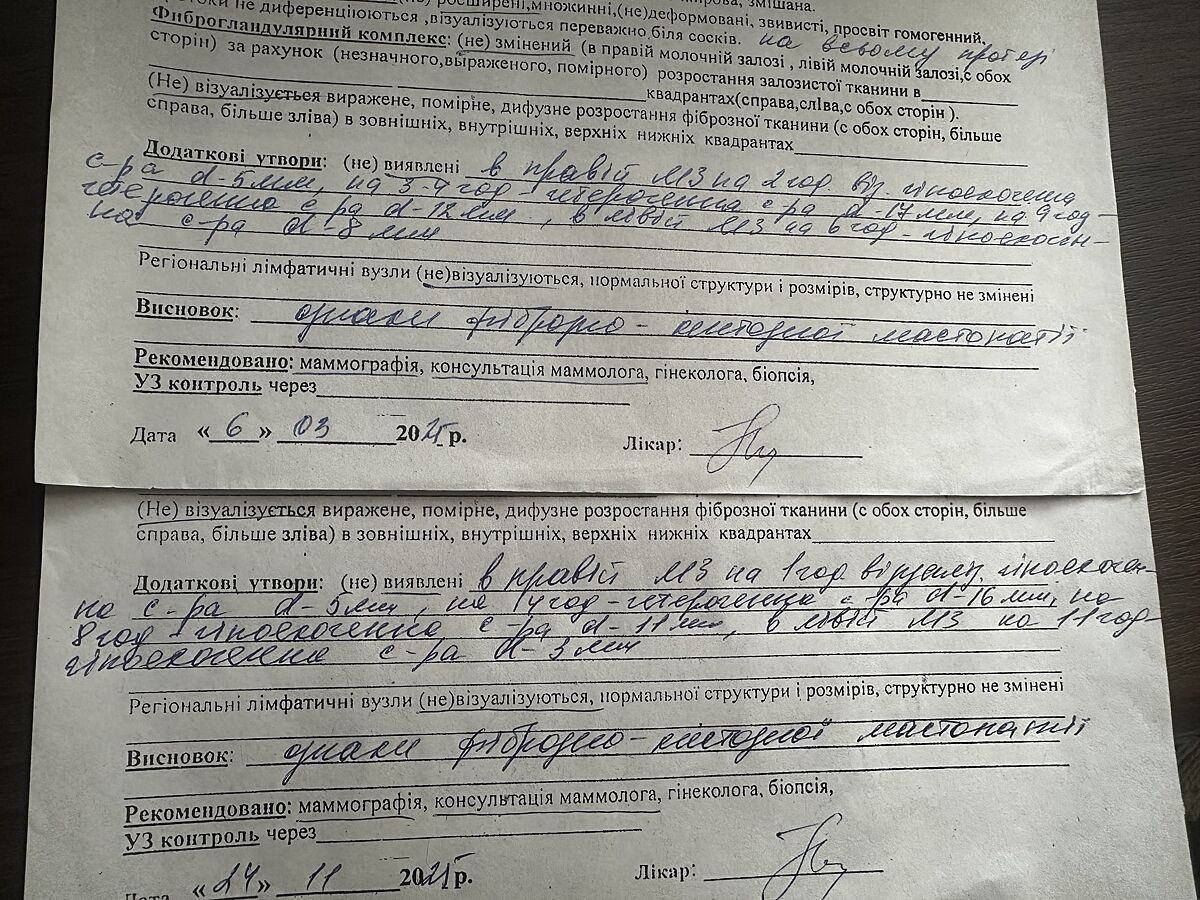 розширені,множинні,(не)деформовані, звивисті, просвіт гомогенний,
не диференціюються ,візуалізуються переважно біля сосків. на всьому протязі
Фіброгландулярний комплекс: (не) змінений (в правій молочній залозі , лівій молочній залозі,с обох
сторін) за рахунок (незначного,выраженого, помірного) розростання залозистої тканини в
квадрантах(справа,сліва,с обох сторін ).
(Не) візуалізується виражене, помірне, дифузне розростання фіброзної тканини (с обох сторін, більше
справа, більше зліва) в зовнішніх, внутрішніх, верхніх нижніх квадрантах
Додаткові утвори: (не) виявлені в правій МЗ на 2 год. віз. гіпоехогенна
с-ра d-5мм, на 3-4 год - гетерогенна с-ра d-17мм, на 9 год-
гетерогенна с-ра d-12мм., в лівій МЗ на 6 год - гіпоехоген-
на с-ра d-8 мм
Регіональні лімфатичні вузли (не)візуалізуються, нормальної структури і розмірів, структурно не змінені
Висновок: ознаки фіброзно - кистозної мастопатії
Рекомендовано: маммографія, консультація маммолога, гінеколога, біопсія,
УЗ контроль через
Дата «6» 03 2025р. Лікар:
(Не) візуалізується виражене, помірне, дифузне розростання фіброзної тканини (с обох сторін, більше
справа, більше зліва) в зовнішніх, внутрішніх, верхніх нижніх квадрантах
Додаткові утвори: (не) виявлені в правій МЗ на 1 год. візуаліз. гіпоехоген-
на с-ра d-5мм, на 4 год - гетерогенна с-ра d-16 мм, на
8 год - гіпоехогенна с-ра d-11мм, в лівій МЗ на 11 год-
гіпоехогенна с-ра d-3мм
Регіональні лімфатичні вузли (не)візуалізуються, нормальної структури і розмірів, структурно не змінені
Висновок: ознаки фіброзно-кистозної мастопатії
Рекомендовано: маммографія, консультація маммолога, гінеколога, біопсія,
УЗ контроль через
Дата «24» 11 2025р. Лікар: